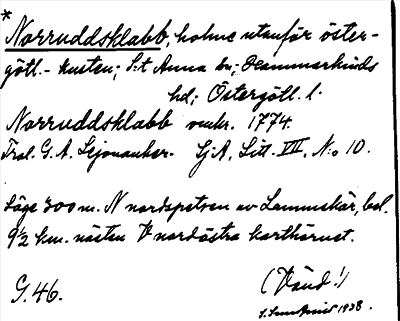 *
Norruddsklabb, holme utanför öster-
götl.-kusten; S:t Anna sn; Hammarkinds
hd; Östergötl. l.
Norruddsklabb omkr. 1774.
Trol. G. A. Lejonanker. SjA, Litt. VIII, No 10.
Läge 300 m. N nordspetsen av Lammskär, bel.
9½ km. nästen V nordöstra karthörnet.
G. 46. (Vänd!)
1938.